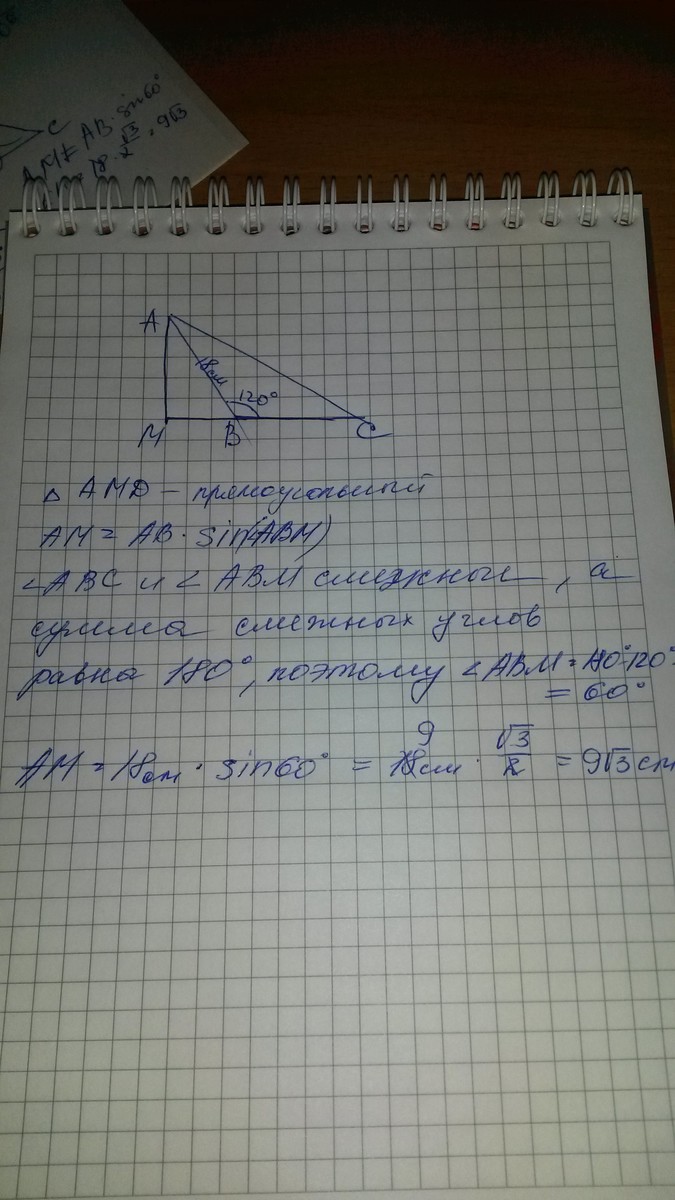 C
AM = AB · sin 60°
18 · √3/2 = 9√3
A
18см
120°
M
B
C
△ AMD – прямоугольный
AM = AB · sin(∠ABM)
∠ABC и ∠ABM смежные, а
сумма смежных углов
равна 180°, поэтому ∠ABM = 180°-120°=
= 60°
9
AM = 18см · sin60° = 18см · √3/2 = 9√3 см